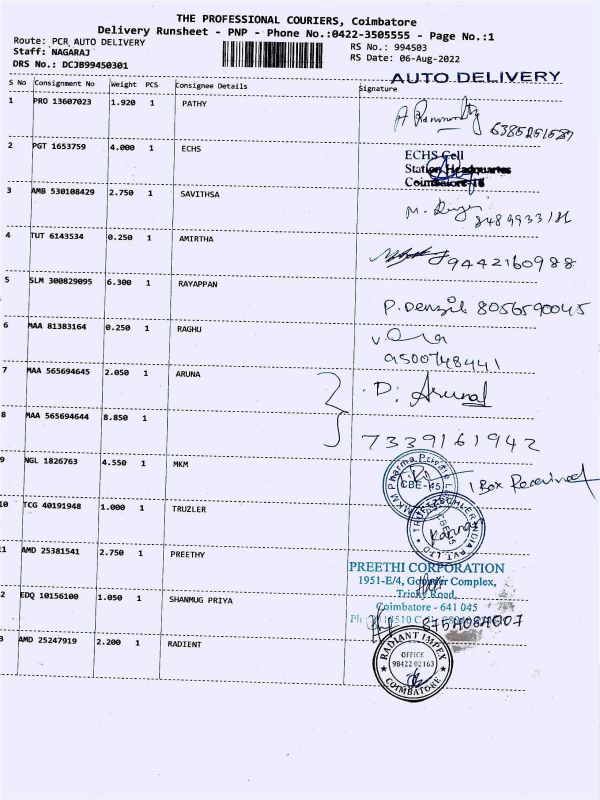 THE PROFESSIONAL COURIERS, Coimbatore
Delivery Runsheet - PNP - Phone No.:0422-3505555 - Page No.:1
Route: PCR AUTO DELIVERY
RS No.: 994503
Staff: NAGARAJ
RS Date: 06-Aug-2022
DRS No.: DCJB99450301
AUTO DELIVERY
S No Consignment No Weight PCS Consignee Details Signature
1 PRO 13607023 1.920 1 PATHY
2 PGT 1653759 4.000 1 ECHS
ECHS Cell
Station Headquarter
Coimbatore-18
3 AMB 530108429 2.750 1 SAVITHSA
4 TUT 6143534 0.250 1 AMIRTHA
9442160988
5 SLM 300829095 6.300 1 RAYAPPAN
P. Denzil 8056590045
6 MAA 81383164 0.250 1 RAGHU
9500748441
7 MAA 565694645 2.050 1 ARUNA
D. Arunal
8 MAA 565694644 8.850 1
7339161942
9 NGL 1826763 4.550 1 MKM
MKM Pharma Private L
CBE-45
1 Box Received
10 TCG 40191948 1.000 1 TRUZLER
TRUETZSCHLER INDIA PVT LTD
CBE-45
Kannan
11 AMD 25381541 2.750 1 PREETHY
PREETHI CORPORATION
1951-E/4, Complex,
Trichy Road,
Coimbatore - 641 045
2 EDQ 10156100 1.050 1 SHANMUG PRIYA
8754084007
3 AMD 25247919 2.200 1 RADIENT
RADIANT IMPEX
OFFICE
98422 02163
COIMBATORE